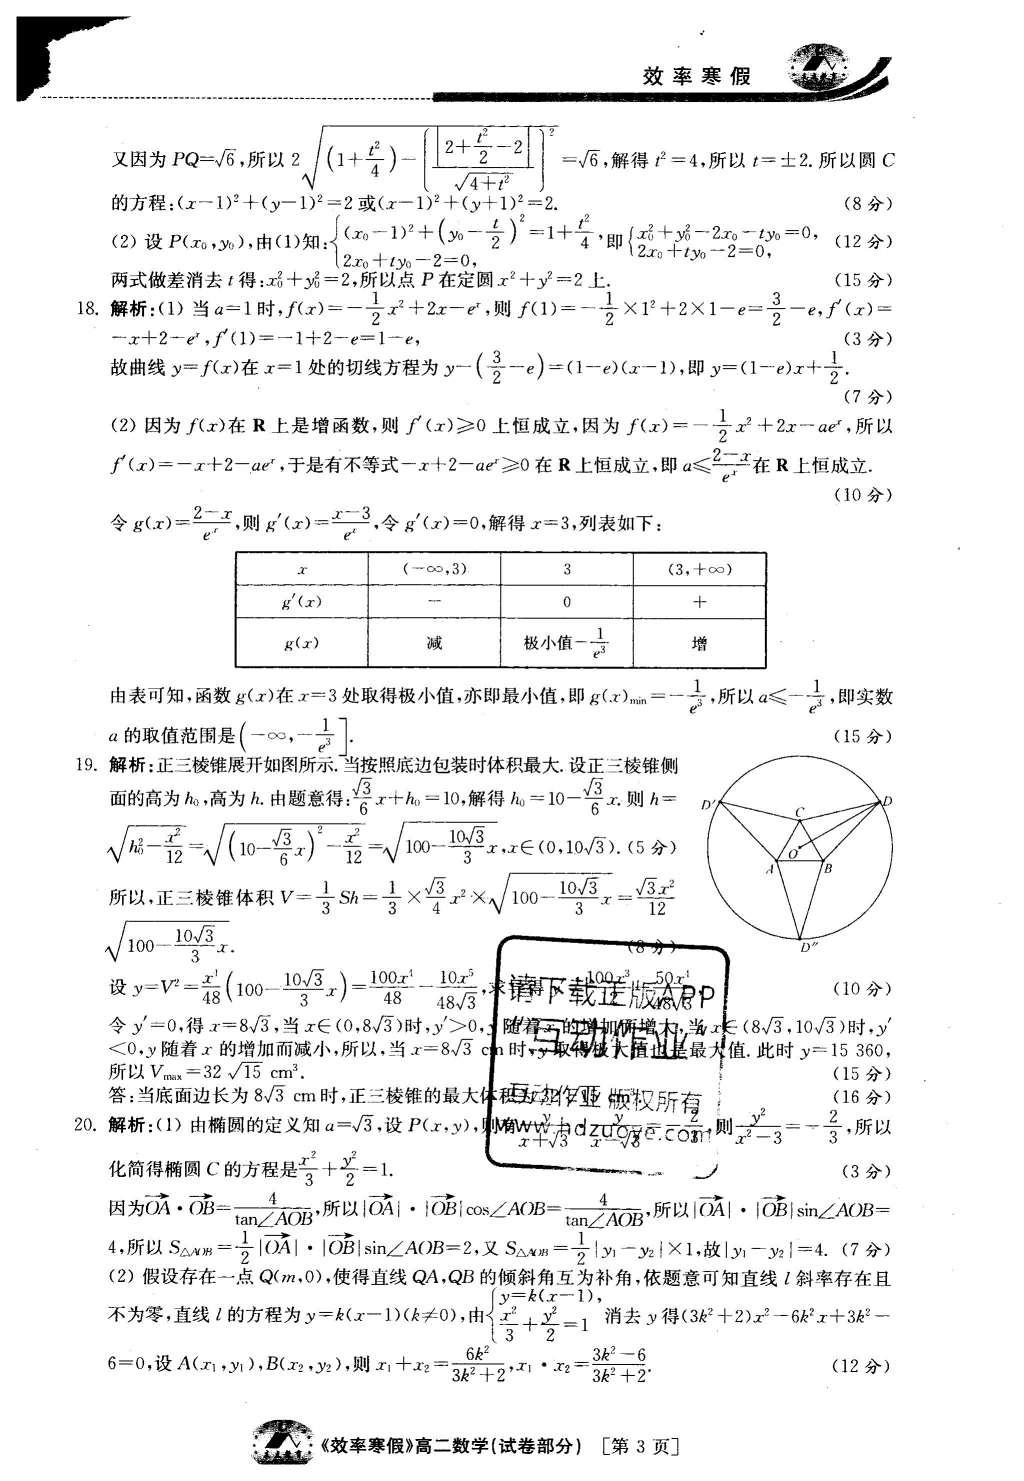 效率寒假
又因为 PQ=√6,所以 2√((1+t²/4)-(|2+t²/2-2|/√(4+t²))²)=√6,解得 t²=4,所以 t=±2. 所以圆 C
的方程:(x-1)²+(y-1)²=2 或(x-1)²+(y+1)²=2. (8 分)
(2) 设 P(x₀,y₀),由(1)知:{(x₀-1)²+(y₀-t/2)²=1+t²/4, 2x₀+ty₀-2=0, 即{x₀²+y₀²-2x₀-ty₀=0, 2x₀+ty₀-2=0, (12 分)
两式做差消去 t 得:x₀²+y₀²=2,所以点 P 在定圆 x²+y²=2 上. (15 分)
18. 解析:(1) 当 a=1 时,f(x)=-1/2x²+2x-eˣ,则 f(1)=-1/2×1²+2×1-e=3/2-e,f′(x)=
-x+2-eˣ,f′(1)=-1+2-e=1-e, (3 分)
故曲线 y=f(x)在 x=1 处的切线方程为 y-(3/2-e)=(1-e)(x-1),即 y=(1-e)x+1/2.
(7 分)
(2) 因为 f(x)在 R 上是增函数,则 f′(x)≥0 上恒成立,因为 f(x)=-1/2x²+2x-aeˣ,所以
f′(x)=-x+2-aeˣ,于是有不等式-x+2-aeˣ≥0 在 R 上恒成立,即 a≤(2-x)/eˣ在 R 上恒成立.
(10 分)
令 g(x)=(2-x)/eˣ,则 g′(x)=(x-3)/eˣ,令 g′(x)=0,解得 x=3,列表如下:
x (-∞,3) 3 (3,+∞)
g′(x) - 0 +
g(x) 减 极小值-1/e³ 增
由表可知,函数 g(x)在 x=3 处取得极小值,亦即最小值,即 g(x)min=-1/e³,所以 a≤-1/e³,即实数
a 的取值范围是(-∞,-1/e³]. (15 分)
19. 解析:正三棱锥展开如图所示.当按照底边包装时体积最大.设正三棱锥侧
面的高为 h₀,高为 h.由题意得:√3/6x+h₀=10,解得 h₀=10-√3/6x.则 h=
√(h₀²-x²/12)=√((10-√3/6x)²-x²/12)=√(100-10√3/3x),x∈(0,10√3).(5 分)
所以,正三棱锥体积 V=1/3Sh=1/3×√3/4x²×√(100-10√3/3x)=√3x²/12
√(100-10√3/3x). (8 分)
D′ D C O A B D″
设 y=V²=x⁴/48(100-10√3/3x)=100x⁴/48-10x⁵/48√3,求导得 100x³/12-50x⁴/48√3 (10 分)
令 y′=0,得 x=8√3,当 x∈(0,8√3)时,y′>0,y 随着 x 的增加而增大,当 x∈(8√3,10√3)时,y′
<0,y 随着 x 的增加而减小,所以,当 x=8√3 cm 时,y 取得极大值也是最大值.此时 y=15 360,
所以 Vmax=32√15 cm³. (15 分)
答:当底面边长为 8√3 cm 时,正三棱锥的最大体积为 32√15 cm³. (16 分)
20. 解析:(1) 由椭圆的定义知 a=√3,设 P(x,y),则有 y/(x+√3)·y/(x-√3)=-2/3,则 y²/(x²-3)=-2/3,所以
请下载正版APP
“互动作业”
互动作业 版权所有
www.hdzuoye.com
化简得椭圆 C 的方程是x²/3+y²/2=1. (3 分)
因为OA→·OB→=4/tan∠AOB,所以|OA→|·|OB→|cos∠AOB=4/tan∠AOB,所以|OA→|·|OB→|sin∠AOB=
4,所以 S△AOB=1/2|OA→|·|OB→|sin∠AOB=2,又 S△AOB=1/2|y₁-y₂|×1,故|y₁-y₂|=4. (7 分)
(2) 假设存在一点 Q(m,0),使得直线 QA,QB 的倾斜角互为补角,依题意可知直线 l 斜率存在且
不为零,直线 l 的方程为 y=k(x-1)(k≠0),由{y=k(x-1), x²/3+y²/2=1 消去 y 得(3k²+2)x²-6k²x+3k²-
6=0,设 A(x₁,y₁),B(x₂,y₂),则 x₁+x₂=6k²/(3k²+2),x₁·x₂=(3k²-6)/(3k²+2). (12 分)
《效率寒假》高二数学(试卷部分) [第 3 页]